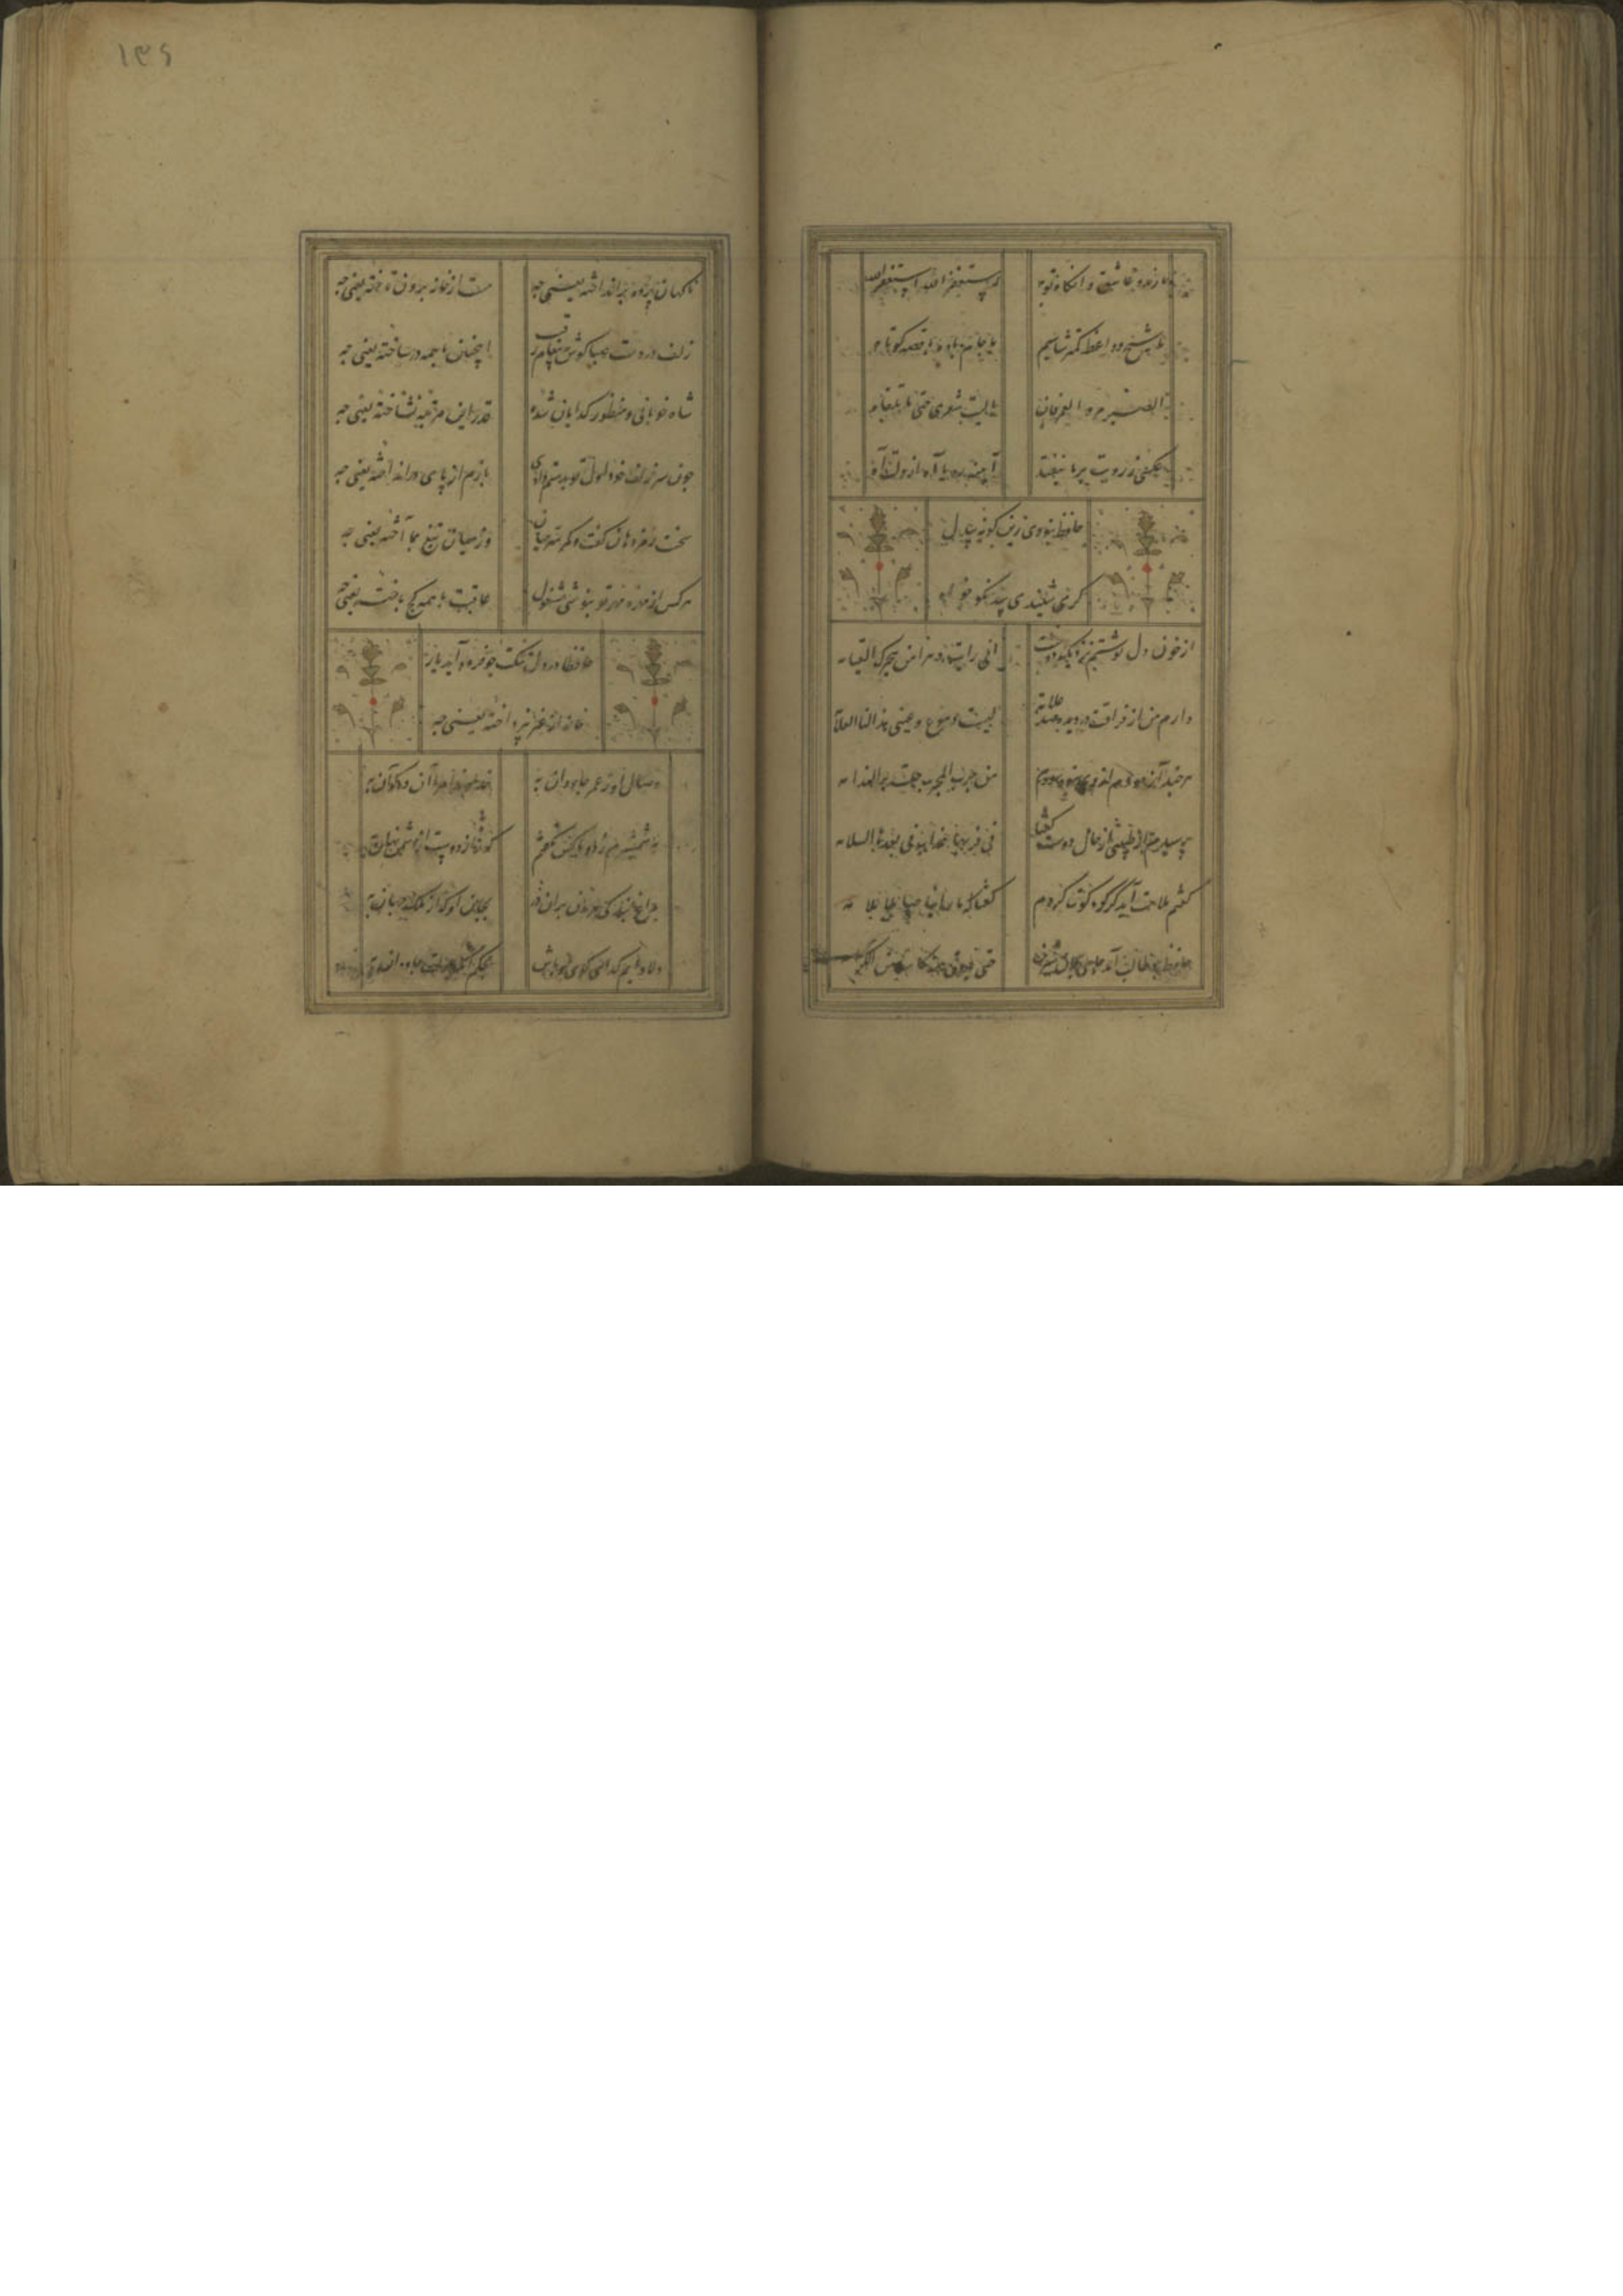 ما رند و عاشق وانگاه توبه استغفر الله استغفر الله
ما شیخ و واعظ کمتر شناسیم یا جام باده یا قصه کوتاه
الصبر مر و العمر فان یا لیت شعری حتی م القاه
عکسی ز رویت بر ما نیفتد آیینه رویا آه از دلت آه
حافظ نبودی زین گونه بیدل
گر می شنیدی پند نکو خواه
از خون دل نوشتم نزدیک دوست نامه انی رایت دهرا من هجرک القیامه
دارم من از فراقت در دیده صد علامت لیست دموع عینی هذا لنا العلامه
هر چند آزمودم از وی نبود سودم من جرب المجرب حلت به الندامه
پرسیدم از طبیبی از حال دوست گفتا فی قربها عذاب فی بعدها السلامه
گفتم ملامت آید گر گرد کوت گردم
حافظ چو طالب آمد جامی بجان شیرین حتی یذوق منه کاسا من الکرامه
۱۳۶
ناکهان پرده بر انداخته یعنی چه مست از خانه برون تاخته یعنی چه
زلف در دست صبا گوش به پیغام رقیب اینچنین با همه در ساخته یعنی چه
شاه خوبانی و منظور کدایان شده قدر این مرتبه نشناخته یعنی چه
چون سر زلف خود اول تو بدستم دادی بازم از پای در انداخته یعنی چه
سخنت رمز دهان گفت و کمر سر میان وز میان تیغ بما آخته یعنی چه
هر کس از مهره مهر تو بنقشی مشغول عاقبت با همه کج باخته یعنی چه
حافظا در دل تنگت چو فرود آید یار
خانه از غیر نپرداخته یعنی چه
وصال او ز عمر جاودان به خداوندا مرا آن ده که آن به
بشمشیرم زد و با کس نگفتم که راز دوست از دشمن نهان به
دلا دایم گدای کوی او باش بحکم آنکه دولت جاودان به